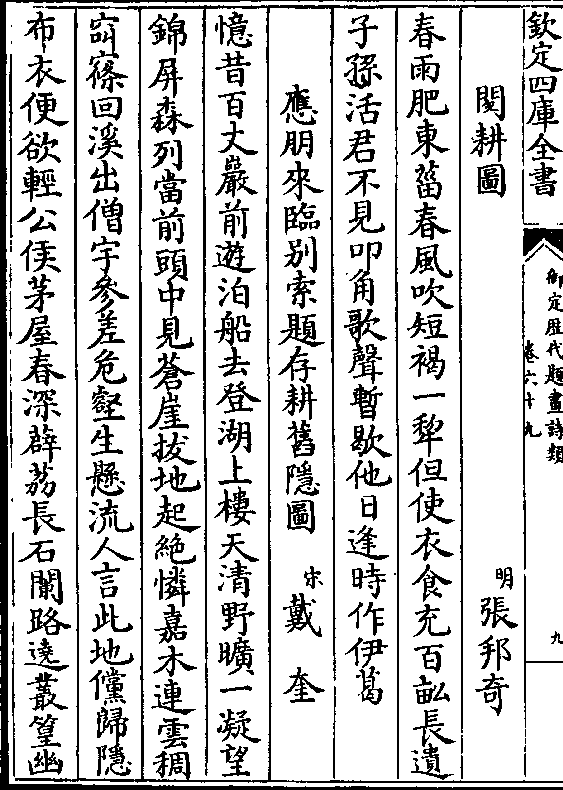 欽定四庫全書
御定歴代題畫詩類
卷六十九
九
閱耕圖
明張邦奇
春雨肥東菑春風吹短褐一犂但使衣食充百畝長遺
子孫活君不見叩角歌聲暫歇他日逢時作伊葛
應朋來臨别索題存耕舊隱圖
宋戴奎
憶昔百丈巖前遊泊船去登湖上樓天清野曠一凝望
錦屏森列當前頭中見蒼崖拔地起絶憐嘉木連雲稠
窅窱回溪出僧宇參差危壑生懸流人言此地儻歸隱
布衣便欲輕公侯茅屋春深薜荔長石闌路遶叢篁幽